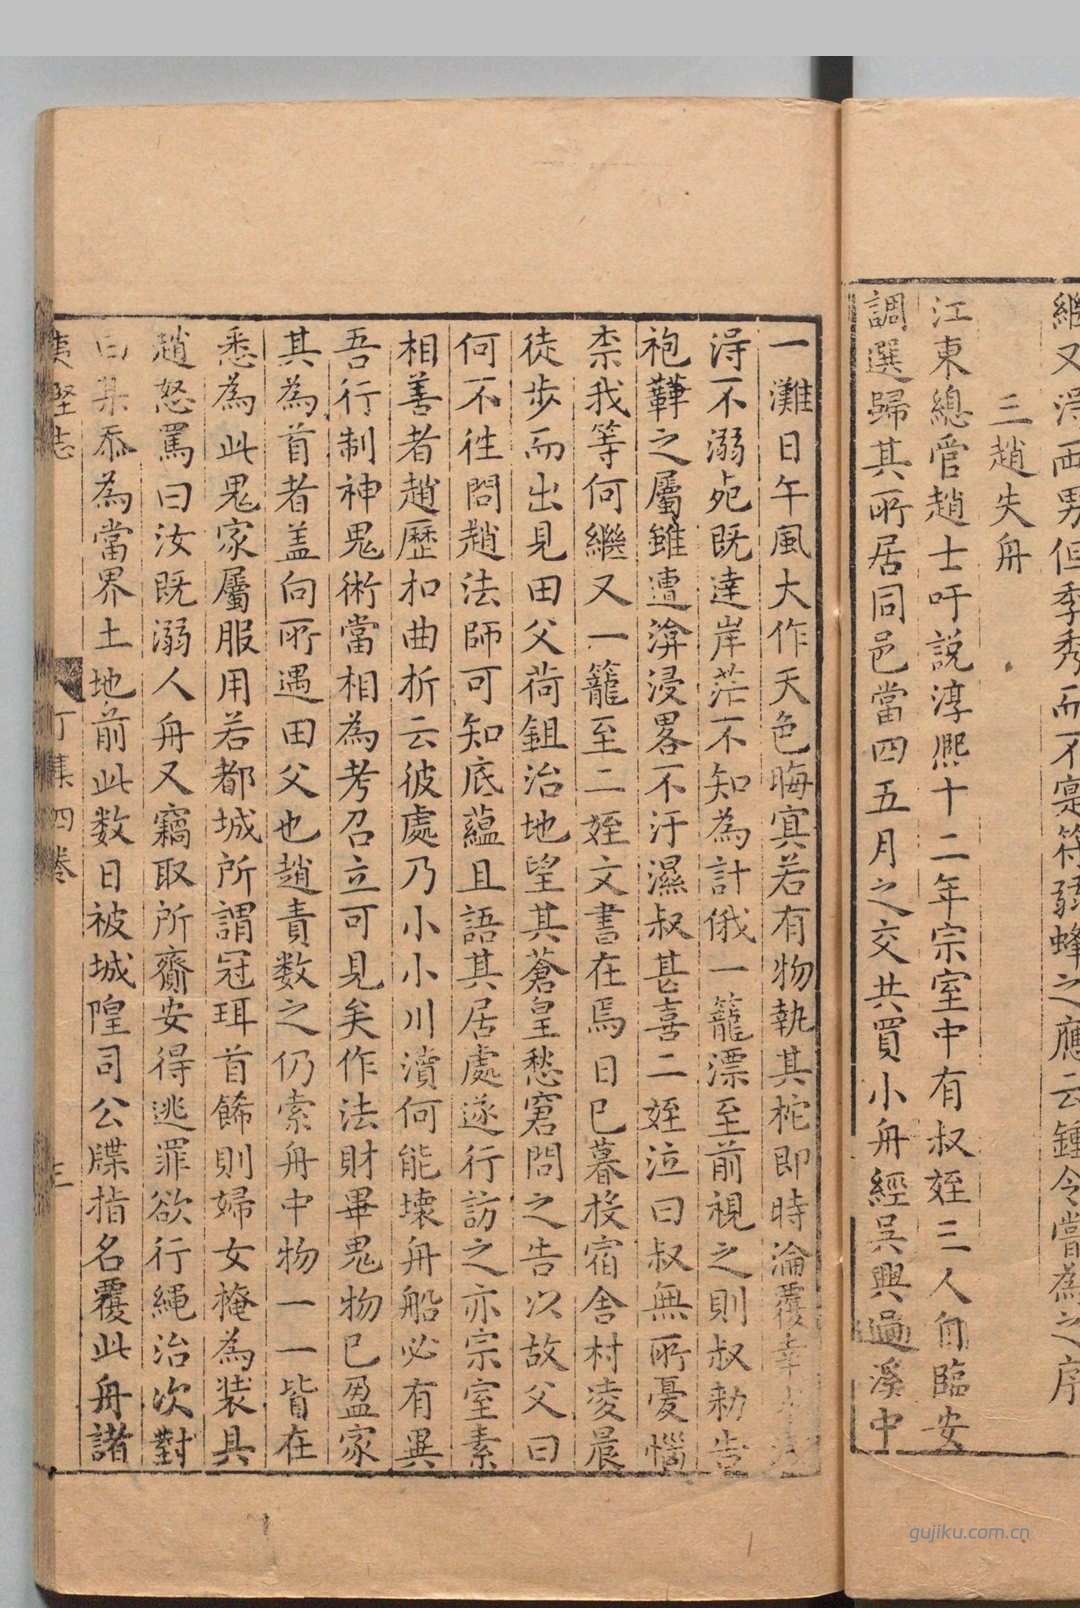 繼又淂両男但季秀而不寔符弱蜂之應云鍾令嘗為之序
三趙失舟
江東總管趙士吁説淳熈十二年宗室中有叔姪三人自臨安
調選歸其所居同邑當四五月之交共買小舟經吳興過溪中
一灘日午風大作天色晦㝠若有物執其柁即時淪覆幸
淂不溺死既達岸茫不知為計俄一籠漂至前視之則叔勅告
袍鞾之屬雖遭渰浸畧不汙濕叔甚喜二姪泣曰叔無所憂惱
柰我等何繼又一籠至二姪文書在焉日已暮投宿舎村凌晨
徒步而出見田父荷鉏治地望其蒼皇愁窘問之告以故父曰
何不徃問趙法師可知底蘊且語其居處遂行訪之亦宗室素
相善者趙歷扣曲折云彼處乃小小川瀆何能壊舟船必有異
吾行制神鬼術當相為考召立可見矣作法財畢鬼物已盈家
其為首者盖向所遇田父也趙責数之仍索舟中物一一皆在
悉為此鬼家屬服用若都城所謂冠珥首餙則婦女掩為装具
趙怒罵曰汝既溺人舟又竊取所齎安得逃罪欲行䋲治次對
曰某忝為當界土地前此数日被城隍司公牒指名覆此舟諸
夷堅志
丁集四卷
三
gujiku.com.cn